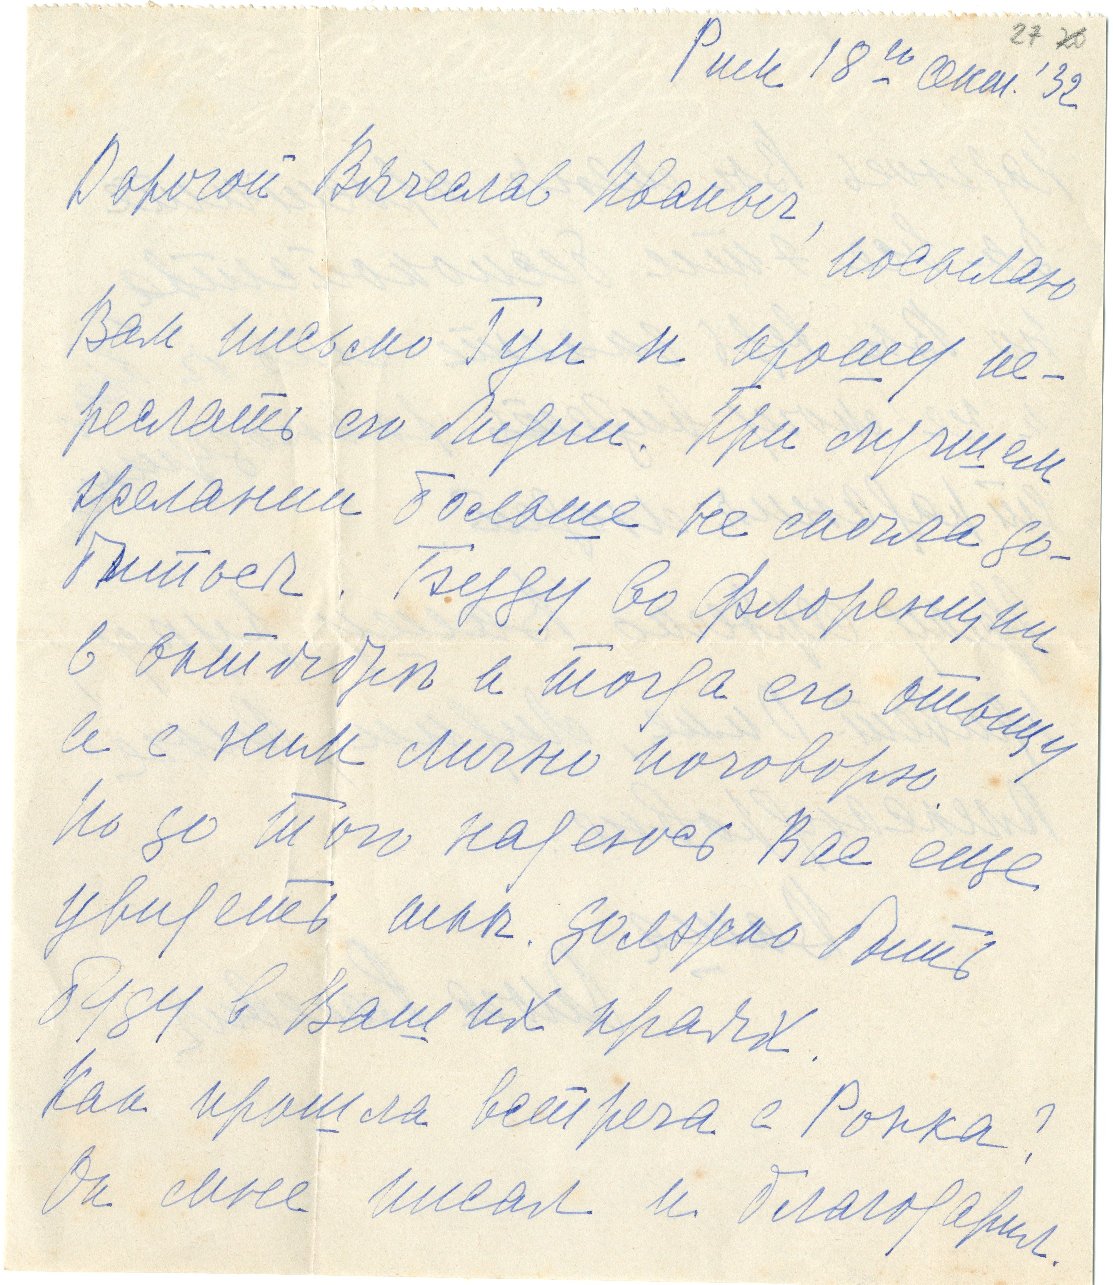 27 26
Рим 18го сент. '32
Дорогой Вячеслав Иваныч,
посылаю
Вам письмо Гуи и прошу пе-
реслать его Лидии. При лучшем
желании больше не смогла до-
биться. Буду во Флоренции
в октябре и тогда его отыщу
и с ним лично поговорю.
Но до того надеюсь Вас еще
увидеть т.к. должно быть
буду в Ваших краях.
Как прошла встреча с Ронка?
Он мне писал и благодарил.